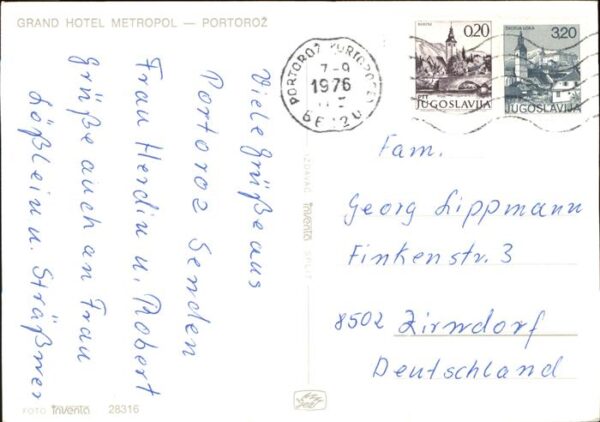 GRAND HOTEL METROPOL — PORTOROŽ
Viele Grüße aus
Portoroz Senden
Frau Herdin u. Robert
grüße auch an Frau
Lößlein u. Sträßner
FOTO inventa 28316
IZDAVAČ inventa SPLIT
PORTOROŽ PORTOROSE
7-9
1976
0.20
PTT
JUGOSLAVIJA
ŠKOFJA LOKA
3.20
JUGOSLAVIJA
Fam.
Georg Lippmann
Finkenstr. 3
8502 Zirndorf
Deutschland